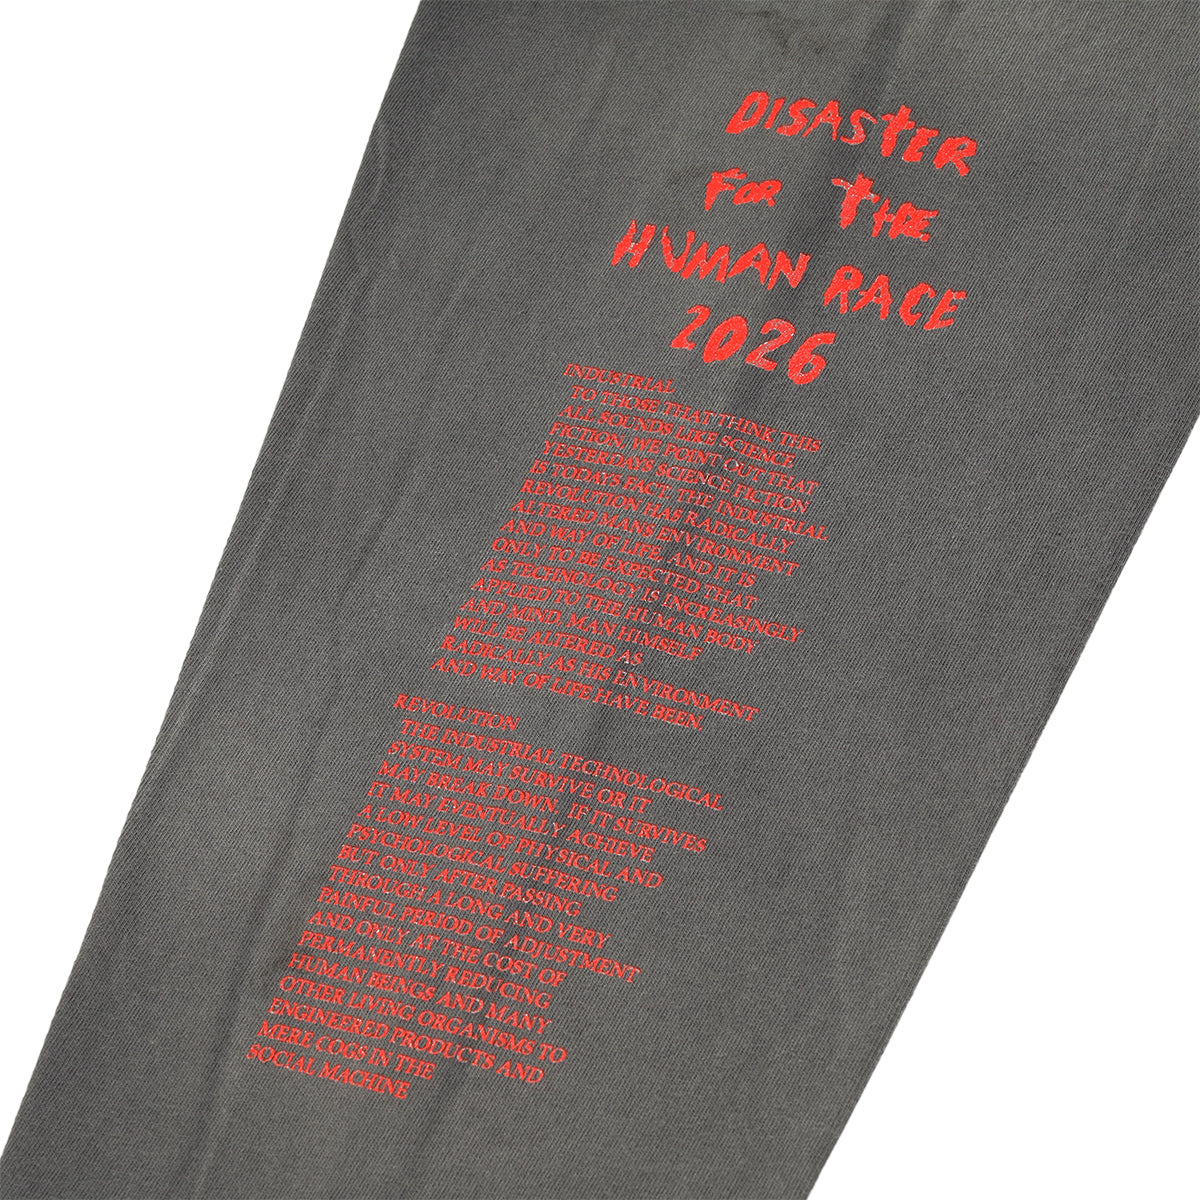 DISASTER
FOR THE
HUMAN RACE
2026
INDUSTRIAL
TO THOSE THAT THINK THIS
ALL SOUNDS LIKE SCIENCE
FICTION, WE POINT OUT THAT
YESTERDAYS SCIENCE FICTION
IS TODAYS FACT. THE INDUSTRIAL
REVOLUTION HAS RADICALLY
ALTERED MANS ENVIRONMENT
AND WAY OF LIFE, AND IT IS
ONLY TO BE EXPECTED THAT
AS TECHNOLOGY IS INCREASINGLY
APPLIED TO THE HUMAN BODY
AND MIND, MAN HIMSELF
WILL BE ALTERED AS
RADICALLY AS HIS ENVIRONMENT
AND WAY OF LIFE HAVE BEEN.
REVOLUTION
THE INDUSTRIAL TECHNOLOGICAL
SYSTEM MAY SURVIVE OR IT
MAY BREAK DOWN. IF IT SURVIVES
IT MAY EVENTUALLY ACHIEVE
A LOW LEVEL OF PHYSICAL AND
PSYCHOLOGICAL SUFFERING
BUT ONLY AFTER PASSING
THROUGH A LONG AND VERY
PAINFUL PERIOD OF ADJUSTMENT
AND ONLY AT THE COST OF
PERMANENTLY REDUCING
HUMAN BEINGS AND MANY
OTHER LIVING ORGANISMS TO
ENGINEERED PRODUCTS AND
MERE COGS IN THE
SOCIAL MACHINE